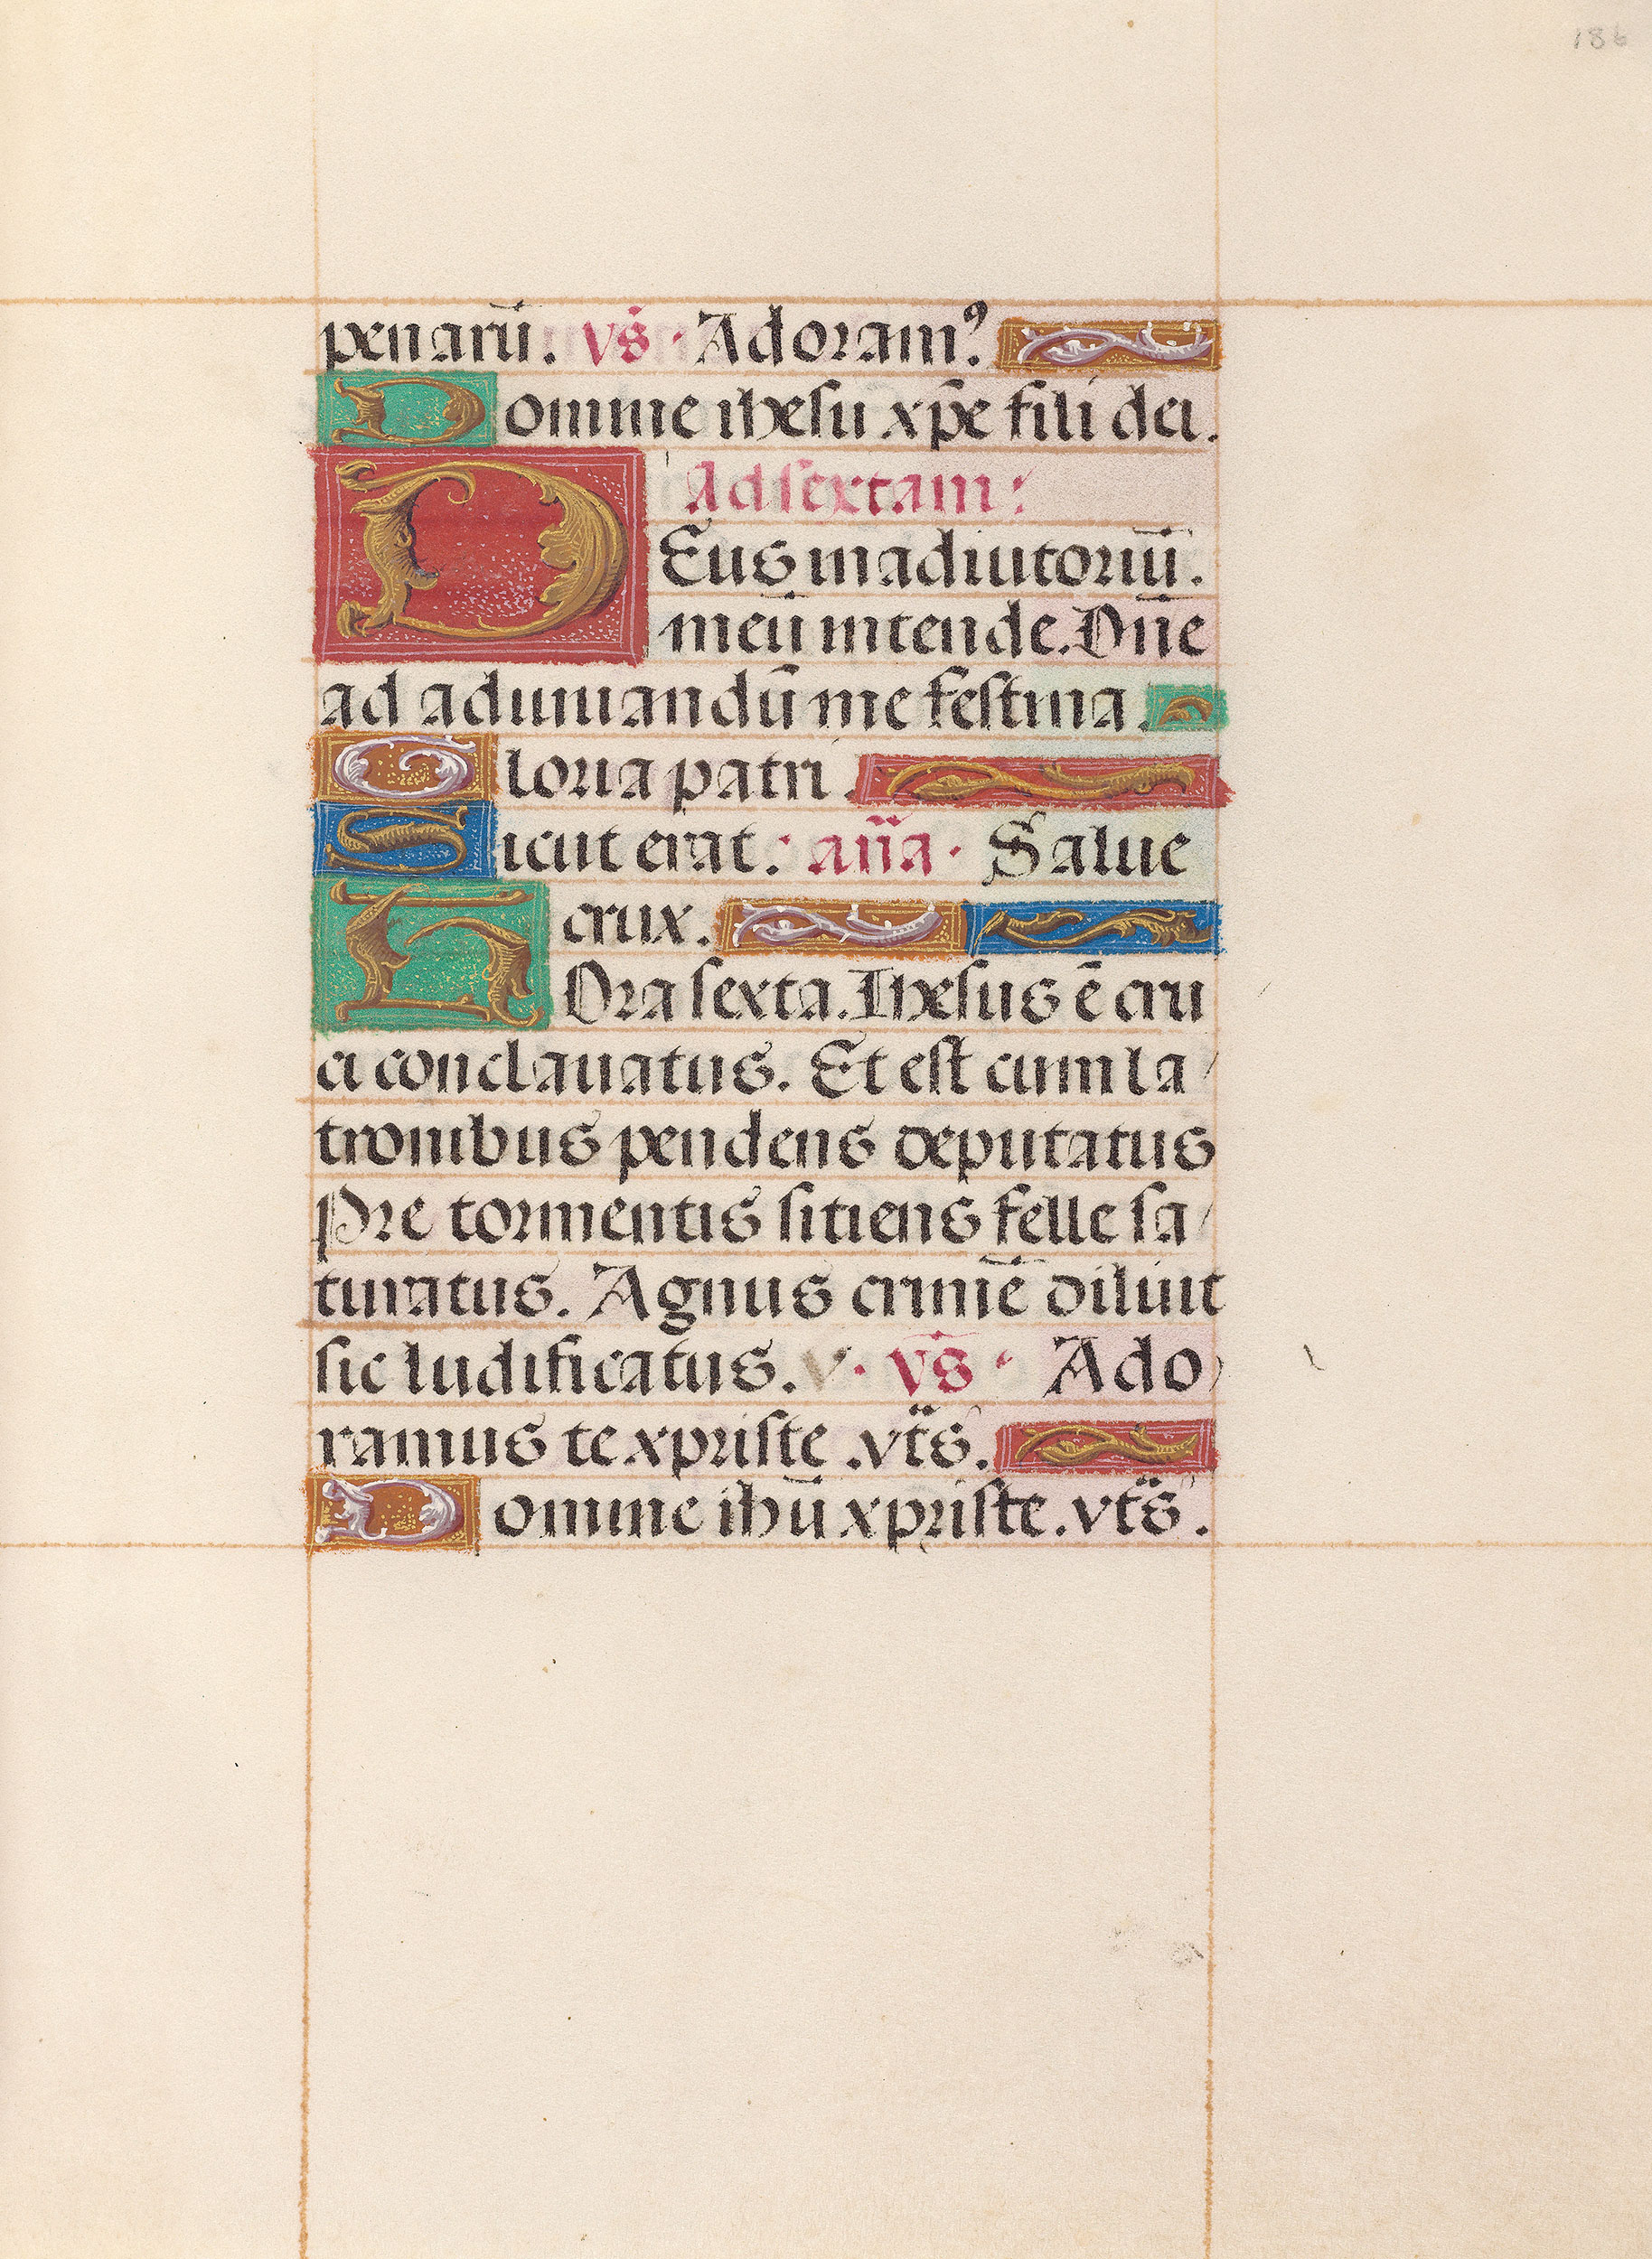 186
penarū. vs̄ · Adoramꝰ
Domine ihesu xp̄e fili dei.
Ad sextam:
Deus in adiutoriū.
meū intende. Dn̄e
ad adiuuandū me festina.
Gloria patri.
Sicut erat: an̄a · Salue
crux.
Hora sexta. Ihesus ē cru
ci conclauatus. Et est cum la/
tronibus pendens deputatus
Pre tormentis sitiens felle sa/
turatus. Agnus crimē diluit
sic ludificatus. v · vs̄ · Ado
ramus te xpriste .vt̄s.
Domine ihū xpriste .vt̄s.